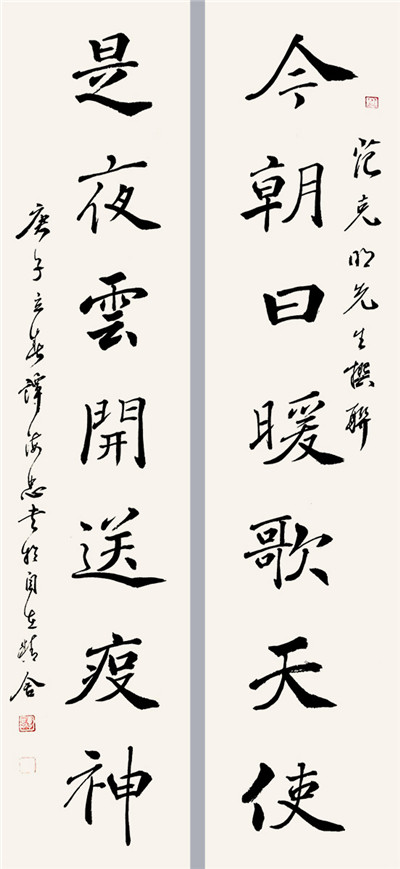 范克明先生撰聯
今朝日暖歌天使
是夜雲開送疫神
庚子立春譚海忠書於自在精舍